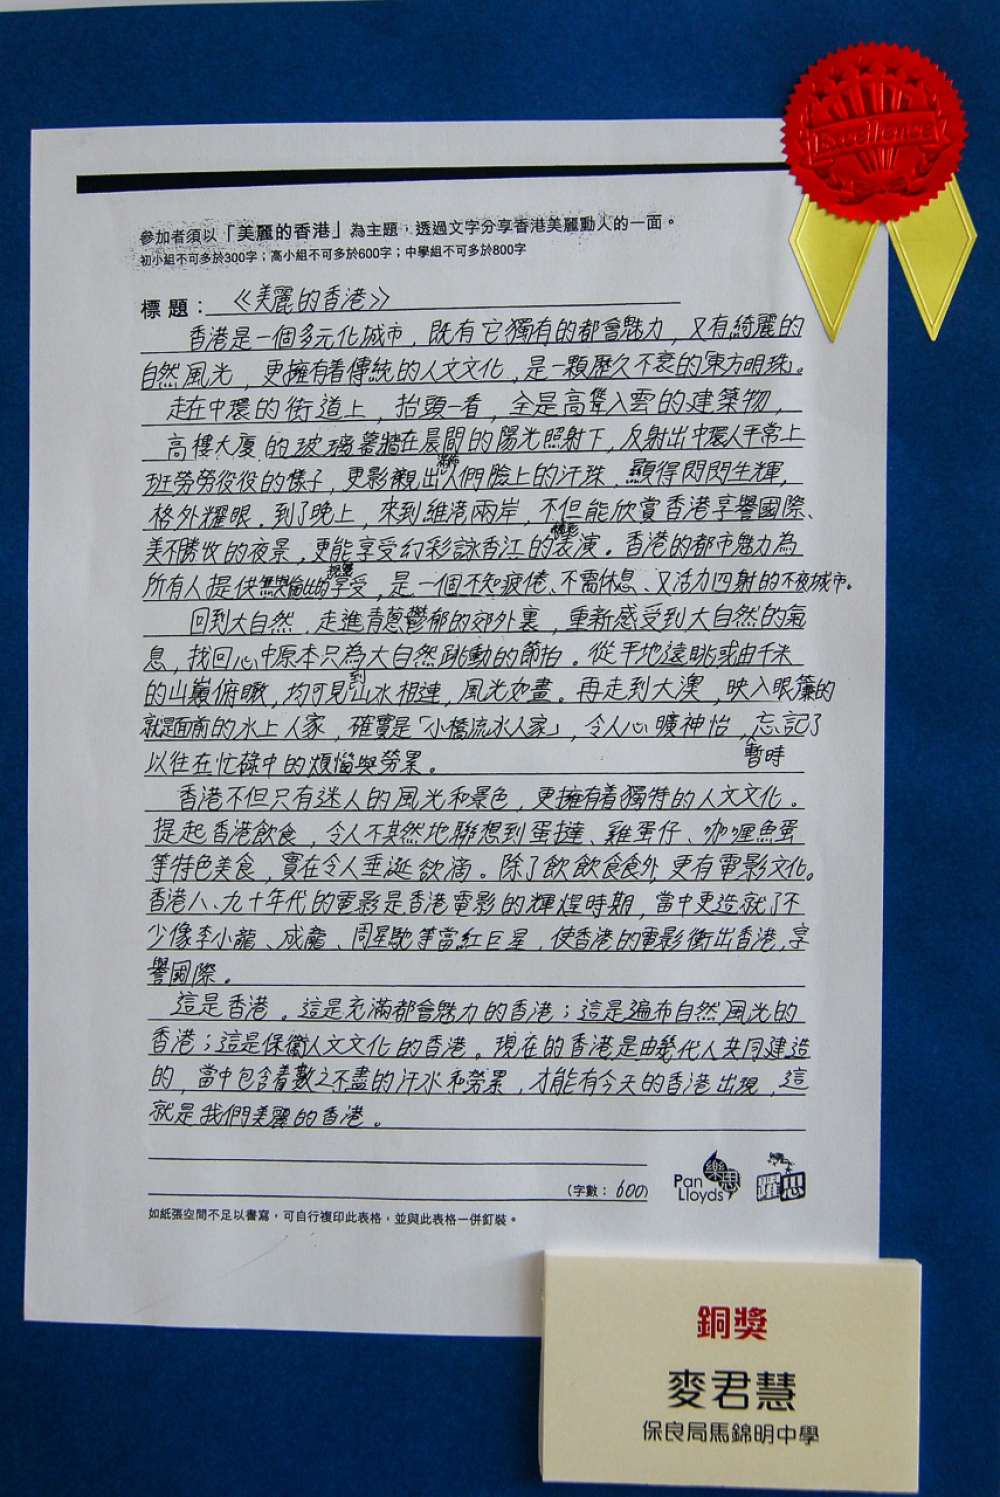 Excellence
參加者須以「美麗的香港」為主題，透過文字分享香港美麗動人的一面。
初小組不可多於300字；高小組不可多於600字；中學組不可多於800字
標題：《美麗的香港》
香港是一個多元化城市，既有它獨有的都會魅力，又有綺麗的
自然風光，更擁有着傳統的人文文化，是一顆歷久不衰的「東方明珠」。
走在中環的街道上，抬頭一看，全是高聳入雲的建築物，
高樓大廈的玻璃幕牆在晨間的陽光照射下，反射出中環人平常上
班勞勞役役的樣子，更影襯出人們臉上的汗珠，顯得閃閃生輝，
格外耀眼。到了晚上，來到維港兩岸，不但能欣賞香港享譽國際、
美不勝收的夜景，更能享受幻彩詠香江的精彩表演。香港的都市魅力為
所有人提供無與倫比的視覺享受，是一個不知疲倦、不需休息、又活力四射的不夜城市。
回到大自然，走進青蔥鬱郁的郊外裏，重新感受到大自然的氣
息，找回心中原本只為大自然跳動的節拍。從平地遠眺或由千米
的山巔俯瞰，均可見到山水相連，風光如畫。再走到大澳，映入眼簾的
就是面前的水上人家，確實是「小橋流水人家」，令人心曠神怡，暫時忘記了
以往在忙碌中的煩惱與勞累。
香港不但只有迷人的風光和景色，更擁有着獨特的人文文化。
提起香港飲食，令人不其然地聯想到蛋撻、雞蛋仔、咖喱魚蛋
等特色美食，實在令人垂涎欲滴。除了飲飲食食外，更有電影文化。
香港八、九十年代的電影是香港電影的輝煌時期，當中更造就了不
少像李小龍、成龍、周星馳等當紅巨星，使香港的電影衝出香港，享
譽國際。
這是香港。這是充滿都會魅力的香港；這是遍布自然風光的
香港；這是保衞人文文化的香港。現在的香港是由幾代人共同建造
的，當中包含着數之不盡的汗水和勞累，才能有今天的香港出現，這
就是我們美麗的香港。
Pan Lloyds 樂思
躍思
（字數：600）
如紙張空間不足以書寫，可自行複印此表格，並與此表格一併釘裝。
銅獎
麥君慧
保良局馬錦明中學